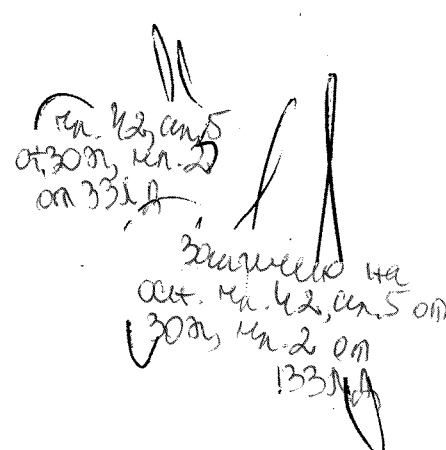 чл. 42, ал. 5
от ЗОП, чл. 2
от ЗЗЛД
Заличено на
осн. чл. 42, ал. 5 от
ЗОП, чл. 2 от
ЗЗЛД